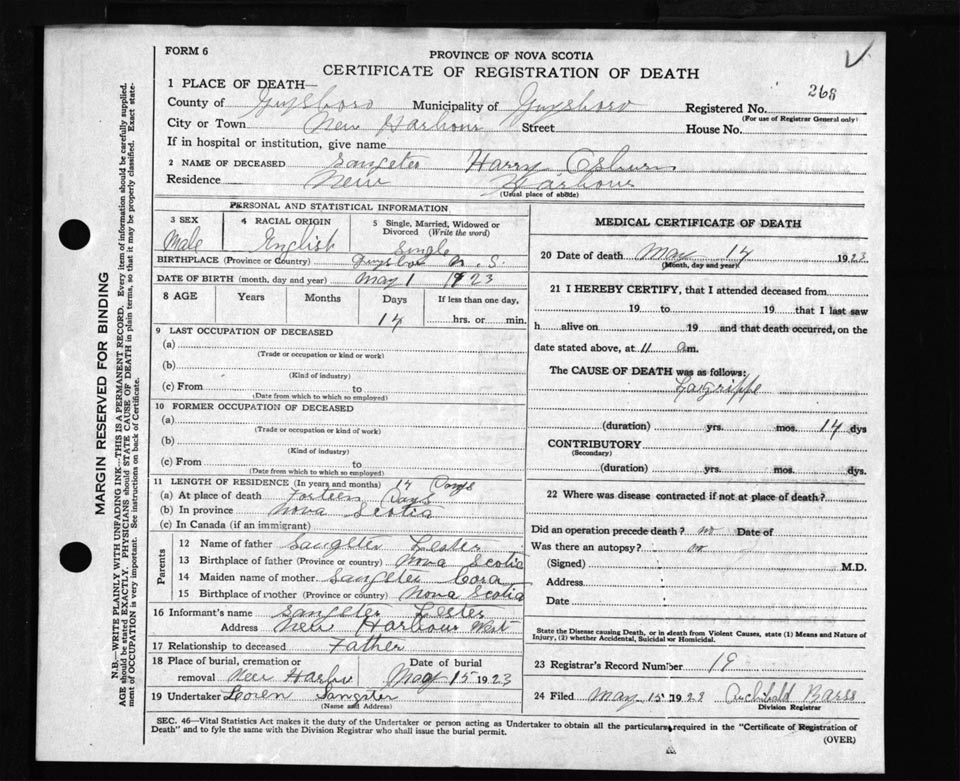 FORM 6
PROVINCE OF NOVA SCOTIA
CERTIFICATE OF REGISTRATION OF DEATH
268
1 PLACE OF DEATH—
County of Guysboro Municipality of Guysboro Registered No.
(For use of Registrar General only)
City or Town New Harbour Street House No.
If in hospital or institution, give name
2 NAME OF DECEASED Sangster Harry Osburn
Residence New Harbour
(Usual place of abode)
PERSONAL AND STATISTICAL INFORMATION
3 SEX 4 RACIAL ORIGIN 5 Single, Married, Widowed or Divorced (Write the word)
Male English Single
BIRTHPLACE (Province or Country) Guysboro N.S.
DATE OF BIRTH (month, day and year) May 1 1923
8 AGE Years Months Days If less than one day,
14 hrs. or min.
9 LAST OCCUPATION OF DECEASED
(a)
(Trade or occupation or kind or work)
(b)
(Kind of industry)
(c) From to
(Date from which to which so employed)
10 FORMER OCCUPATION OF DECEASED
(a)
(Trade or occupation or kind of work)
(b)
(Kind of industry)
(c) From to
(Date from which to which so employed)
11 LENGTH OF RESIDENCE (In years and months) 14 Days
(a) At place of death Forteen Days
(b) In province Nova Scotia
(c) In Canada (if an immigrant)
Parents
12 Name of father Sangster Lester
13 Birthplace of father (Province or country) Nova Scotia
14 Maiden name of mother Sangster Cora
15 Birthplace of mother (Province or country) Nova Scotia
16 Informant's name Sangster Lester
Address New Harbour West
17 Relationship to deceased Father
18 Place of burial, cremation or removal New Harbr Date of burial May 15 1923
19 Undertaker Loren Sangster
(Name and Address)
MEDICAL CERTIFICATE OF DEATH
20 Date of death May 14 1923
(Month, day and year)
21 I HEREBY CERTIFY, that I attended deceased from
19 to 19 that I last saw
h alive on 19 and that death occurred, on the
date stated above, at 11 am.
The CAUSE OF DEATH was as follows:
Lagrippe
(duration) yrs. mos. 14 dys
CONTRIBUTORY
(Secondary)
(duration) yrs. mos. dys.
22 Where was disease contracted if not at place of death?
Did an operation precede death? no Date of
Was there an autopsy? no
(Signed) M.D.
Address
Date
State the Disease causing Death, or in death from Violent Causes, state (1) Means and Nature of
Injury, (2) whether Accidental, Suicidal or Homicidal.
23 Registrar's Record Number 19
24 Filed May 15 1923 Archibald Barss
Division Registrar
SEC. 46—Vital Statistics Act makes it the duty of the Undertaker or person acting as Undertaker to obtain all the particulars required in the "Certificate of Registration of
Death" and to fyle the same with the Division Registrar who shall issue the burial permit.
(OVER)
MARGIN RESERVED FOR BINDING
N.B.—WRITE PLAINLY WITH UNFADING INK—THIS IS A PERMANENT RECORD. Every item of information should be carefully supplied.
AGE should be stated EXACTLY. PHYSICIANS should STATE CAUSE OF DEATH in plain terms, so that it may be properly classified. Exact statement
of OCCUPATION is very important. See instructions on back of Certificate.